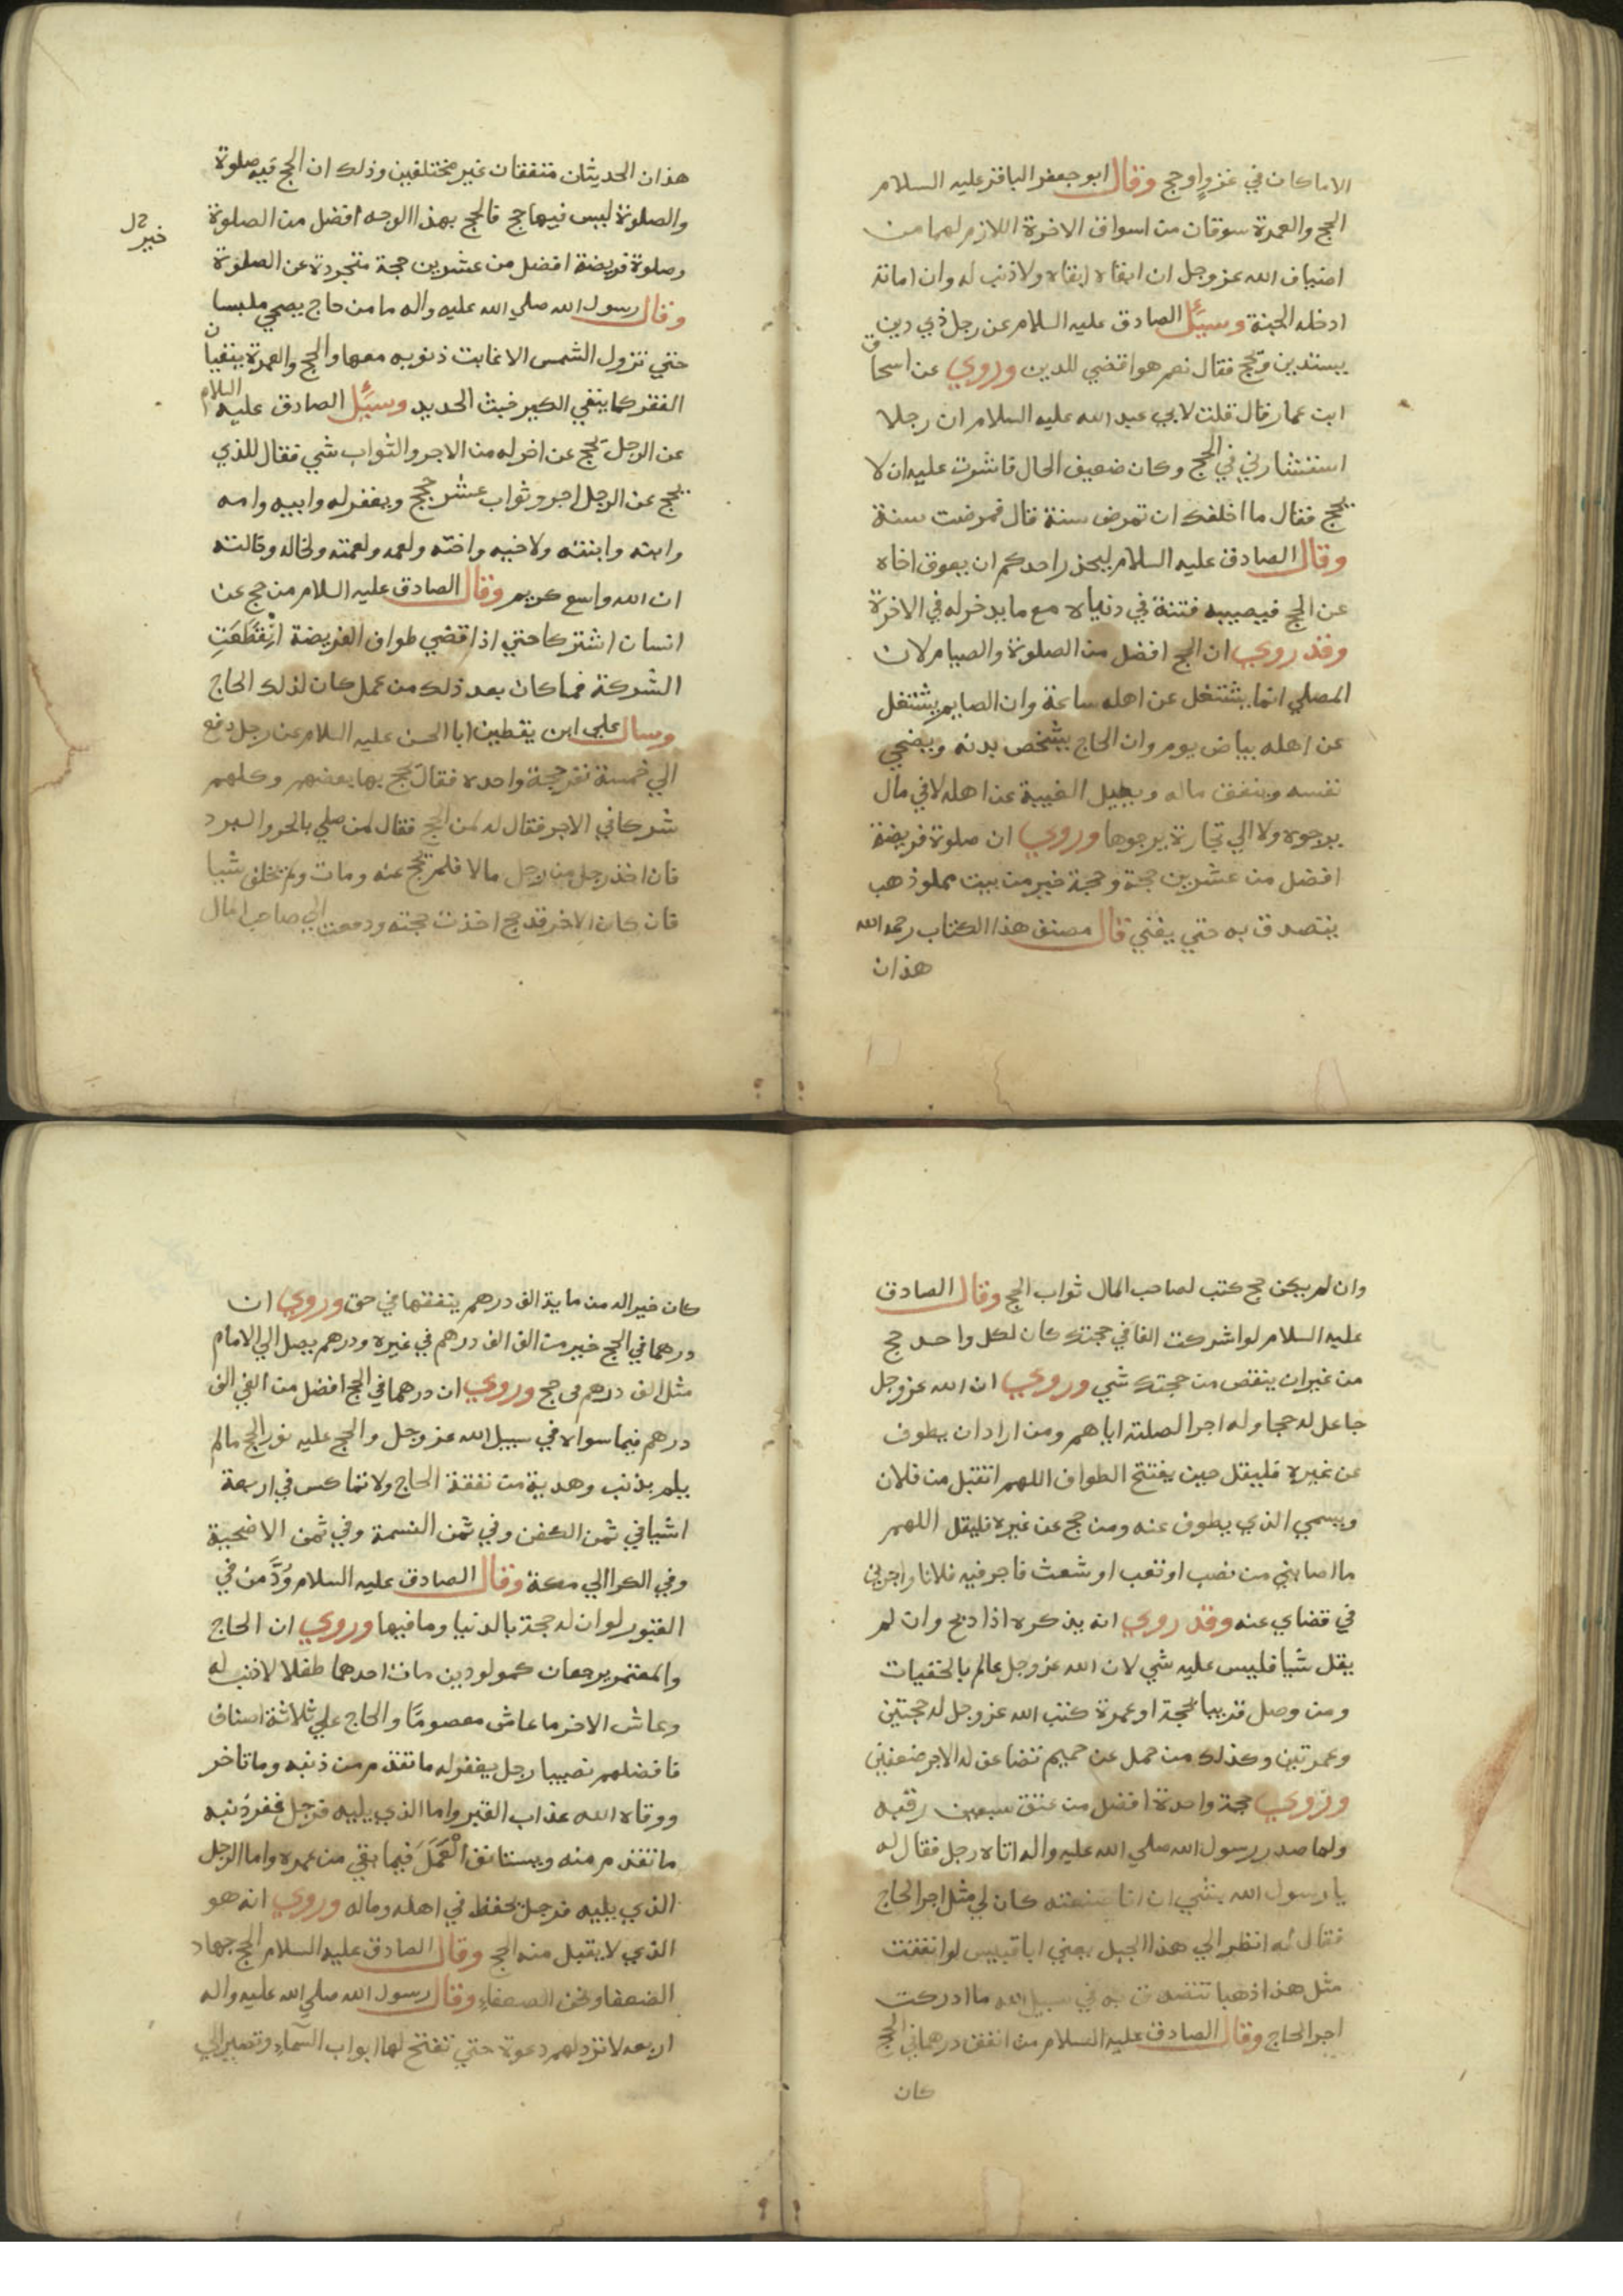 الا ماكان في غزو او حج وقال ابو جعفر الباقر عليه السلام
الحج والعمرة سوقان من اسواق الاخرة اللازم لهما من
اضياف الله عز وجل ان ابقاه ابقاه ولا ذنب له وان اماته
ادخله الجنة وسيَّل الصادق عليه السلام عن رجل ذي دين
يستدين ويحج فقال نعم هو اقضي للدين وروي عن اسحاق
ابن عمار قال قلت لابي عبد الله عليه السلام ان رجلا
استشارني في الحج وكان ضعيف الحال فاشرت عليه ان لا
يحج فقال ما اخلفك ان تمرض سنة قال فمرضت سنة
وقال الصادق عليه السلام ليحذر احدكم ان يعوق اخاه
عن الحج فيصيبه فتنة في دنياه مع ما يدخر له في الاخرة
وقد روي ان الحج افضل من الصلوة والصيام لان
المصلي انما يشتغل عن اهله ساعة وان الصايم يشتغل
عن اهله بياض يوم وان الحاج يشخص بدنه ويضحي
نفسه وينفق ماله ويطيل الغيبة عن اهله لا في مال
يرجوه ولا الي تجارة يرجوها وروي ان صلوة فريضة
افضل من عشرين حجة وحجة خير من بيت مملو ذهب
يتصدق به حتي يفني قال مصنف هذا الكتاب رحمه الله
هذان
هذان الحديثان متفقان غير مختلفين وذلك ان الحج فيه صلوة
والصلوة ليس فيها حج فالحج بهذا الوجه افضل من الصلوة
خير
وصلوة فريضة افضل من عشرين حجة متجردة عن الصلوة
وقال رسول الله صلي الله عليه واله ما من حاج يضحي ملبسا
حتي تزول الشمس الا غابت ذنوبه معها والحج والعمرة ينفيان
الفقر كما ينفي الكير خبث الحديد وسيَّل الصادق عليه السلام
عن الرجل يحج عن اخر له من الاجر والثواب شي فقال للذي
يحج عن الرجل اجر وثواب عشر حجج ويغفر له وابيه وامه
وابنه وابنته ولاخيه واخته ولعمه ولعمته ولخاله وخالته
ان الله واسع كريم وقال الصادق عليه السلام من حج عن
انسان اشتركا حتي اذا قضي طواف الفريضة انْقَطَعَتِ
الشركة فما كان بعد ذلك من عمل كان لذلك الحاج
وسال علي ابن يقطين ابا الحسن عليه السلام عن رجل دفع
الي خمسة نفر حجة واحده فقال يحج بها بعضهم وكلهم
شركا في الاجر فقال له لمن الحج فقال لمن صلي بالحر والبرد
فان اخذ رجل من رجل مالا فلم يحج عنه ومات ولم يخلف شيا
فان كان الاخر قد حج اخذت حجته ودفعت الي صاحب المال
وان لم يكن حج كتب لصاحب المال ثواب الحج وقال الصادق
عليه السلام لو اشركت الفا في حجتك كان لكل واحد حج
من غير ان ينقص من حجتك شي وروي ان الله عز وجل
جاعل له حجا وله اجرا لصلته اياهم ومن اراد ان يطوف
عن غيره فليقل حين يفتتح الطواف اللهم اتقبل من فلان
ويسمي الذي يطوف عنه ومن حج عن غيره فليقل اللهم
ما اصابني من نصب او تعب او شعث فاجر فيه فلانا واجرني
في قضاي عنه وقد روي انه يذكره اذا ذبح وان لم
يقل شيا فليس عليه شي لان الله عز وجل عالم بالخفيات
ومن وصل قريبا بحجة او عمرة كتب الله عز وجل له حجتين
وعمرتين وكذلك من حمل عن حميم تضاعف له الاجر ضعفين
وروي حجة واحدة افضل من عتق سبعين رقبه
ولما صدر رسول الله صلي الله عليه واله اتاه رجل فقال له
يا رسول الله بشي ان انا صنعته كان لي مثل اجر الحاج
فقال له انظر الي هذا الجبل يعني ابا قبيس لو انفقت
مثل هذا ذهبا تتصدق به في سبيل الله ما ادركت
اجر الحاج وقال الصادق عليه السلام من انفق درهما في الحج
كان
كان خيرا له من ماية الف درهم ينفقها في حق وروي ان
درهما في الحج خير من الف الف درهم في غيره ودرهم يصل الي الامام
مثل الف درهم في حج وروي ان درهما في الحج افضل من الفي الف
درهم فيما سواه في سبيل الله عز وجل والحج عليه نور الحج مالم
يلم بذنب وهدية من نفقة الحاج ولا تماكس في اربعة
اشيا في ثمن الكفن وفي ثمن النسمة وفي ثمن الاضحية
وفي الكرا الي مكة وقال الصادق عليه السلام وَدَّ من في
القبور لو ان له حجة بالدنيا وما فيها وروي ان الحاج
والمعتمر يرجعان كمولودين مات احدهما طفلا لا ذنب له
وعاش الاخر ما عاش معصومًا والحاج علي ثلاثة اصناف
فافضلهم نصيبا رجل يغفر له ما تقدم من ذنبه وما تاخر
ووقاه الله عذاب القبر واما الذي يليه فرجل غفر ذنبه
ما تقدم منه ويستانف الْعَمَلَ فيما بقي من عمره واما الرجل
الذي يليه فرجل يحفظ في اهله وماله وروي انه هو
الذي لا يقبل منه الحج وقال الصادق عليه السلام الحج جهاد
الضعفا ونحن الضعفاء وقال رسول الله صلي الله عليه واله
اربعه لا ترد لهم دعوة حتي تفتح لها ابواب السماء وتصير الي